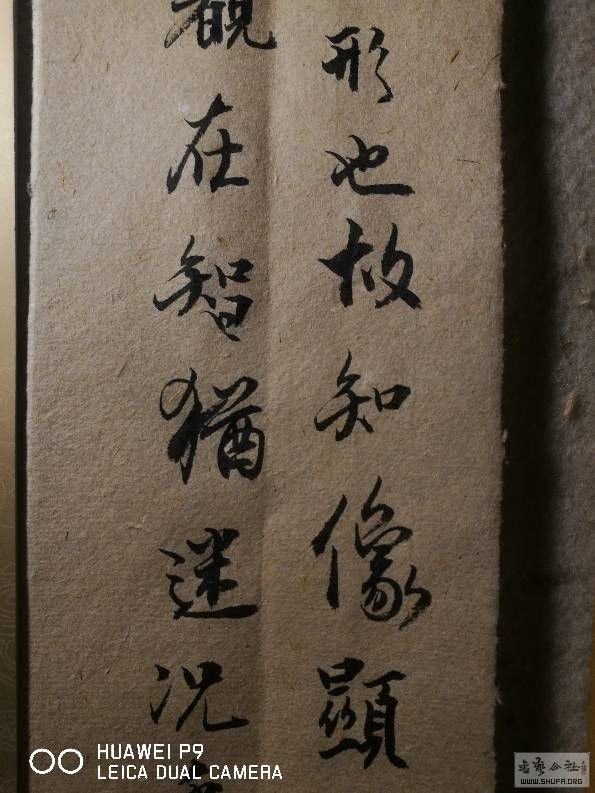 形也故知像顯
覩在智猶迷況
HUAWEI P9
LEICA DUAL CAMERA
WWW.SHUFA.ORG